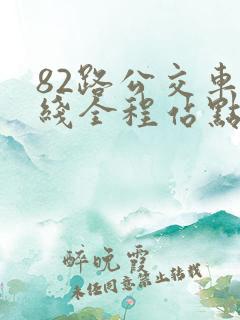 82路公交車
綫全程佔點
醉晚霞
未经同意禁止转载